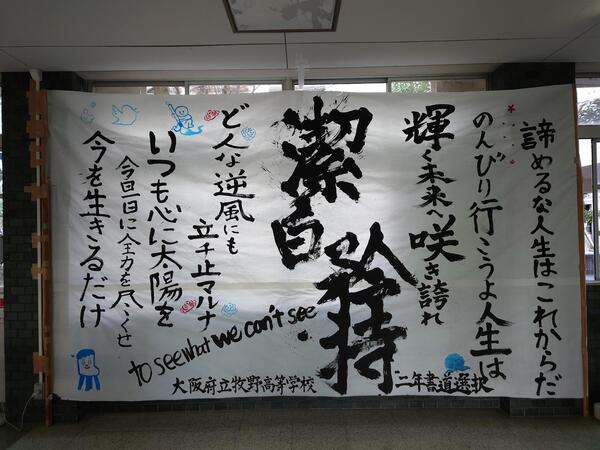 諦めるな人生はこれからだ
のんびり行こうよ人生は
輝く未来へ咲き誇れ
潔白
矜持
どんな逆風にも
立チ止マルナ
いつも心に太陽を
今日一日に全力を尽くせ
今を生きるだけ
to see what we can't see
大阪府立牧野高等学校
二年書道選択